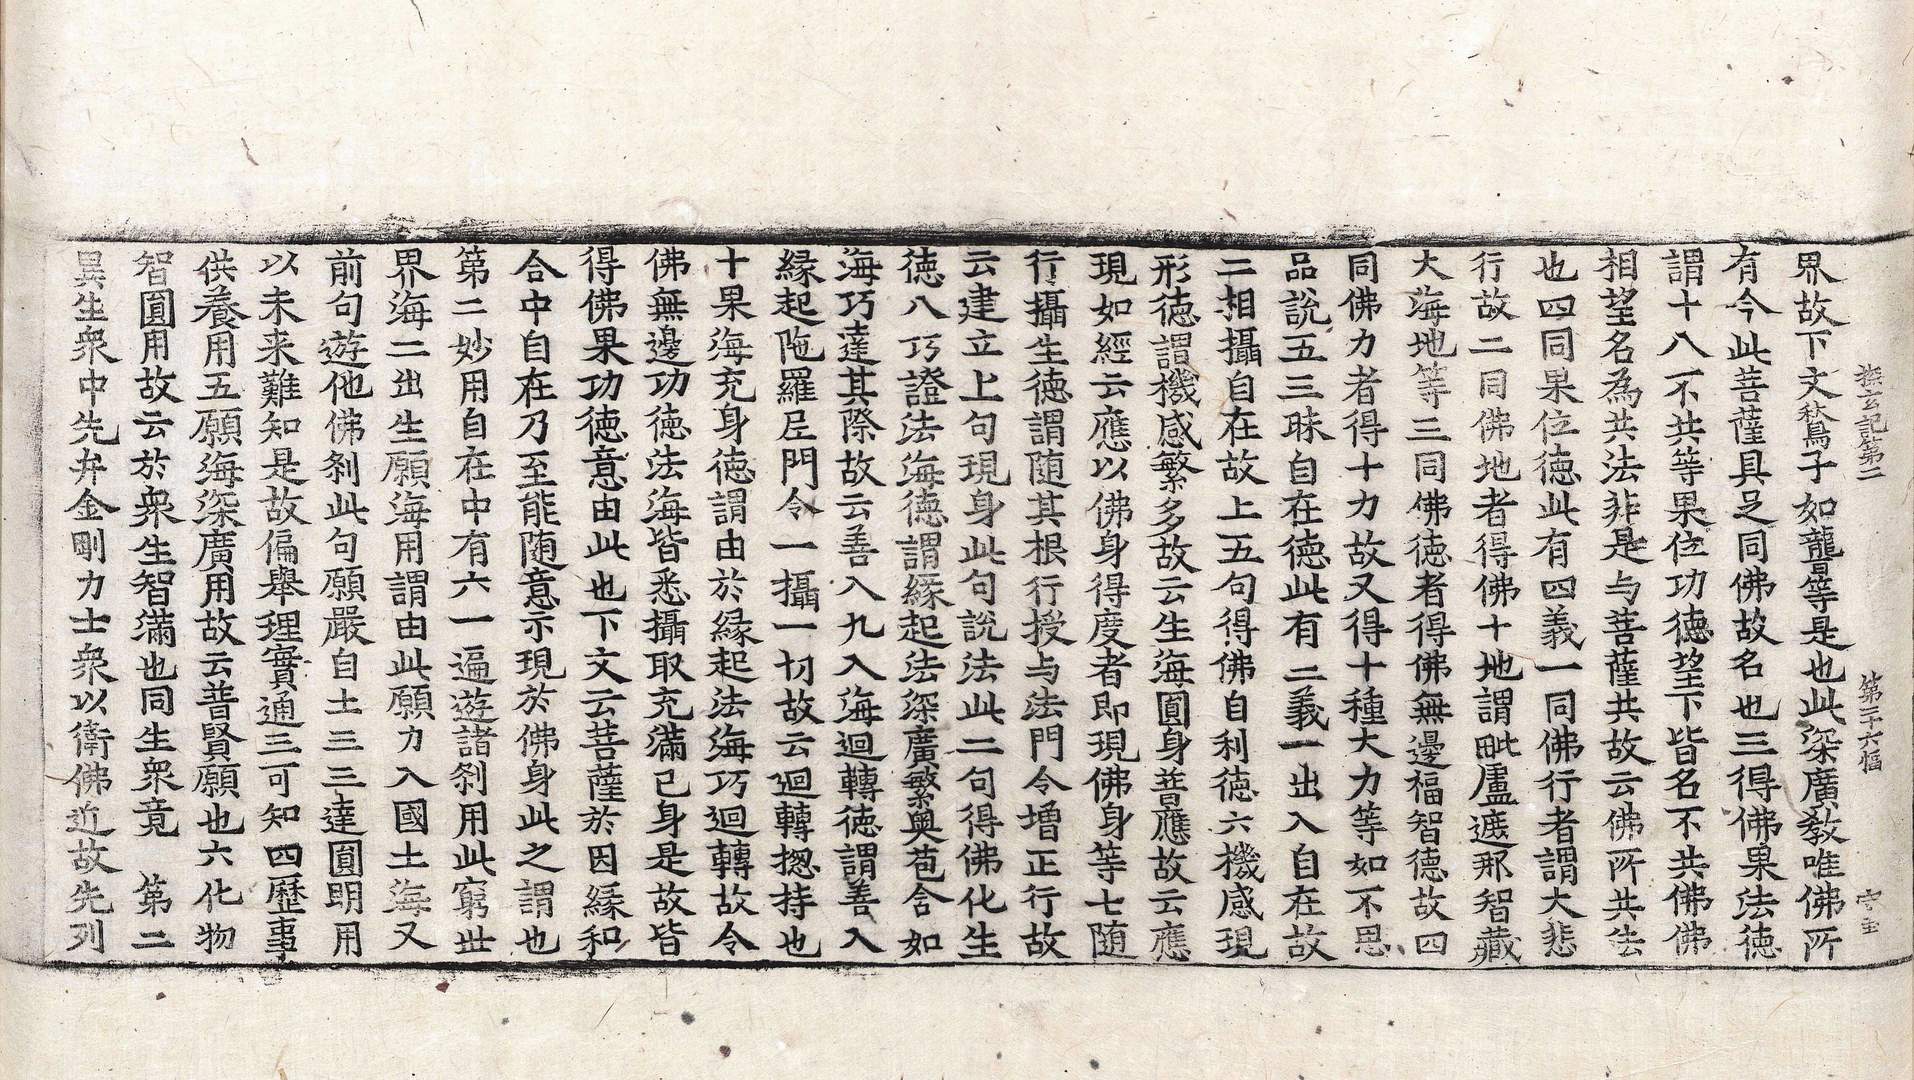 探玄記第二 第二十六幅 守玄
界故下文鶖子如聾等是也此深廣敎唯佛所
有今此菩薩具足同佛故名也三得佛果法徳
謂十八不共等果位功德望下皆名不共佛佛
相望名為共法非是与菩薩共故云佛所共法
也四同果位徳此有四義一同佛行者謂大悲
行故二同佛地者得佛十地謂毗盧遮那智藏
大海地等三同佛徳者得佛無邊福智德故四
同佛力者得十力故又得十種大力等如不思
品說五三昧自在德此有二義一出入自在故
二相攝自在故上五句得佛自利徳六機感現
形徳謂機感繁多故云生海圓身普應故云應
現如經云應以佛身得度者即現佛身等七随
行攝生徳謂随其根行授与法門令增正行故
云建立上句現身此句說法此二句得佛化生
徳八巧證法海德謂緣起法深廣繁奥苞含如
海巧達其際故云善入九入海迴轉徳謂善入
緣起陁羅尼門令一攝一切故云迴轉揔持也
十果海充身徳謂由於縁起法海巧迴轉故令
佛無邊功徳法海皆悉攝取充滿已身是故皆
得佛果功徳意由此也下文云菩薩於因縁和
合中自在乃至能随意示現於佛身此之謂也
第二妙用自在中有六一遍遊諸刹用此窮世
界海二出生願海用謂由此願力入國土海又
前句遊他佛刹此句願嚴自土三三達圓明用
以未来難知是故偏舉理實通三可知四歷事
供養用五願海深廣用故云普賢願也六化物
智圓用故云於衆生智滿也同生衆竟 第二
異生衆中先弁金剛力士衆以衛佛近故先列